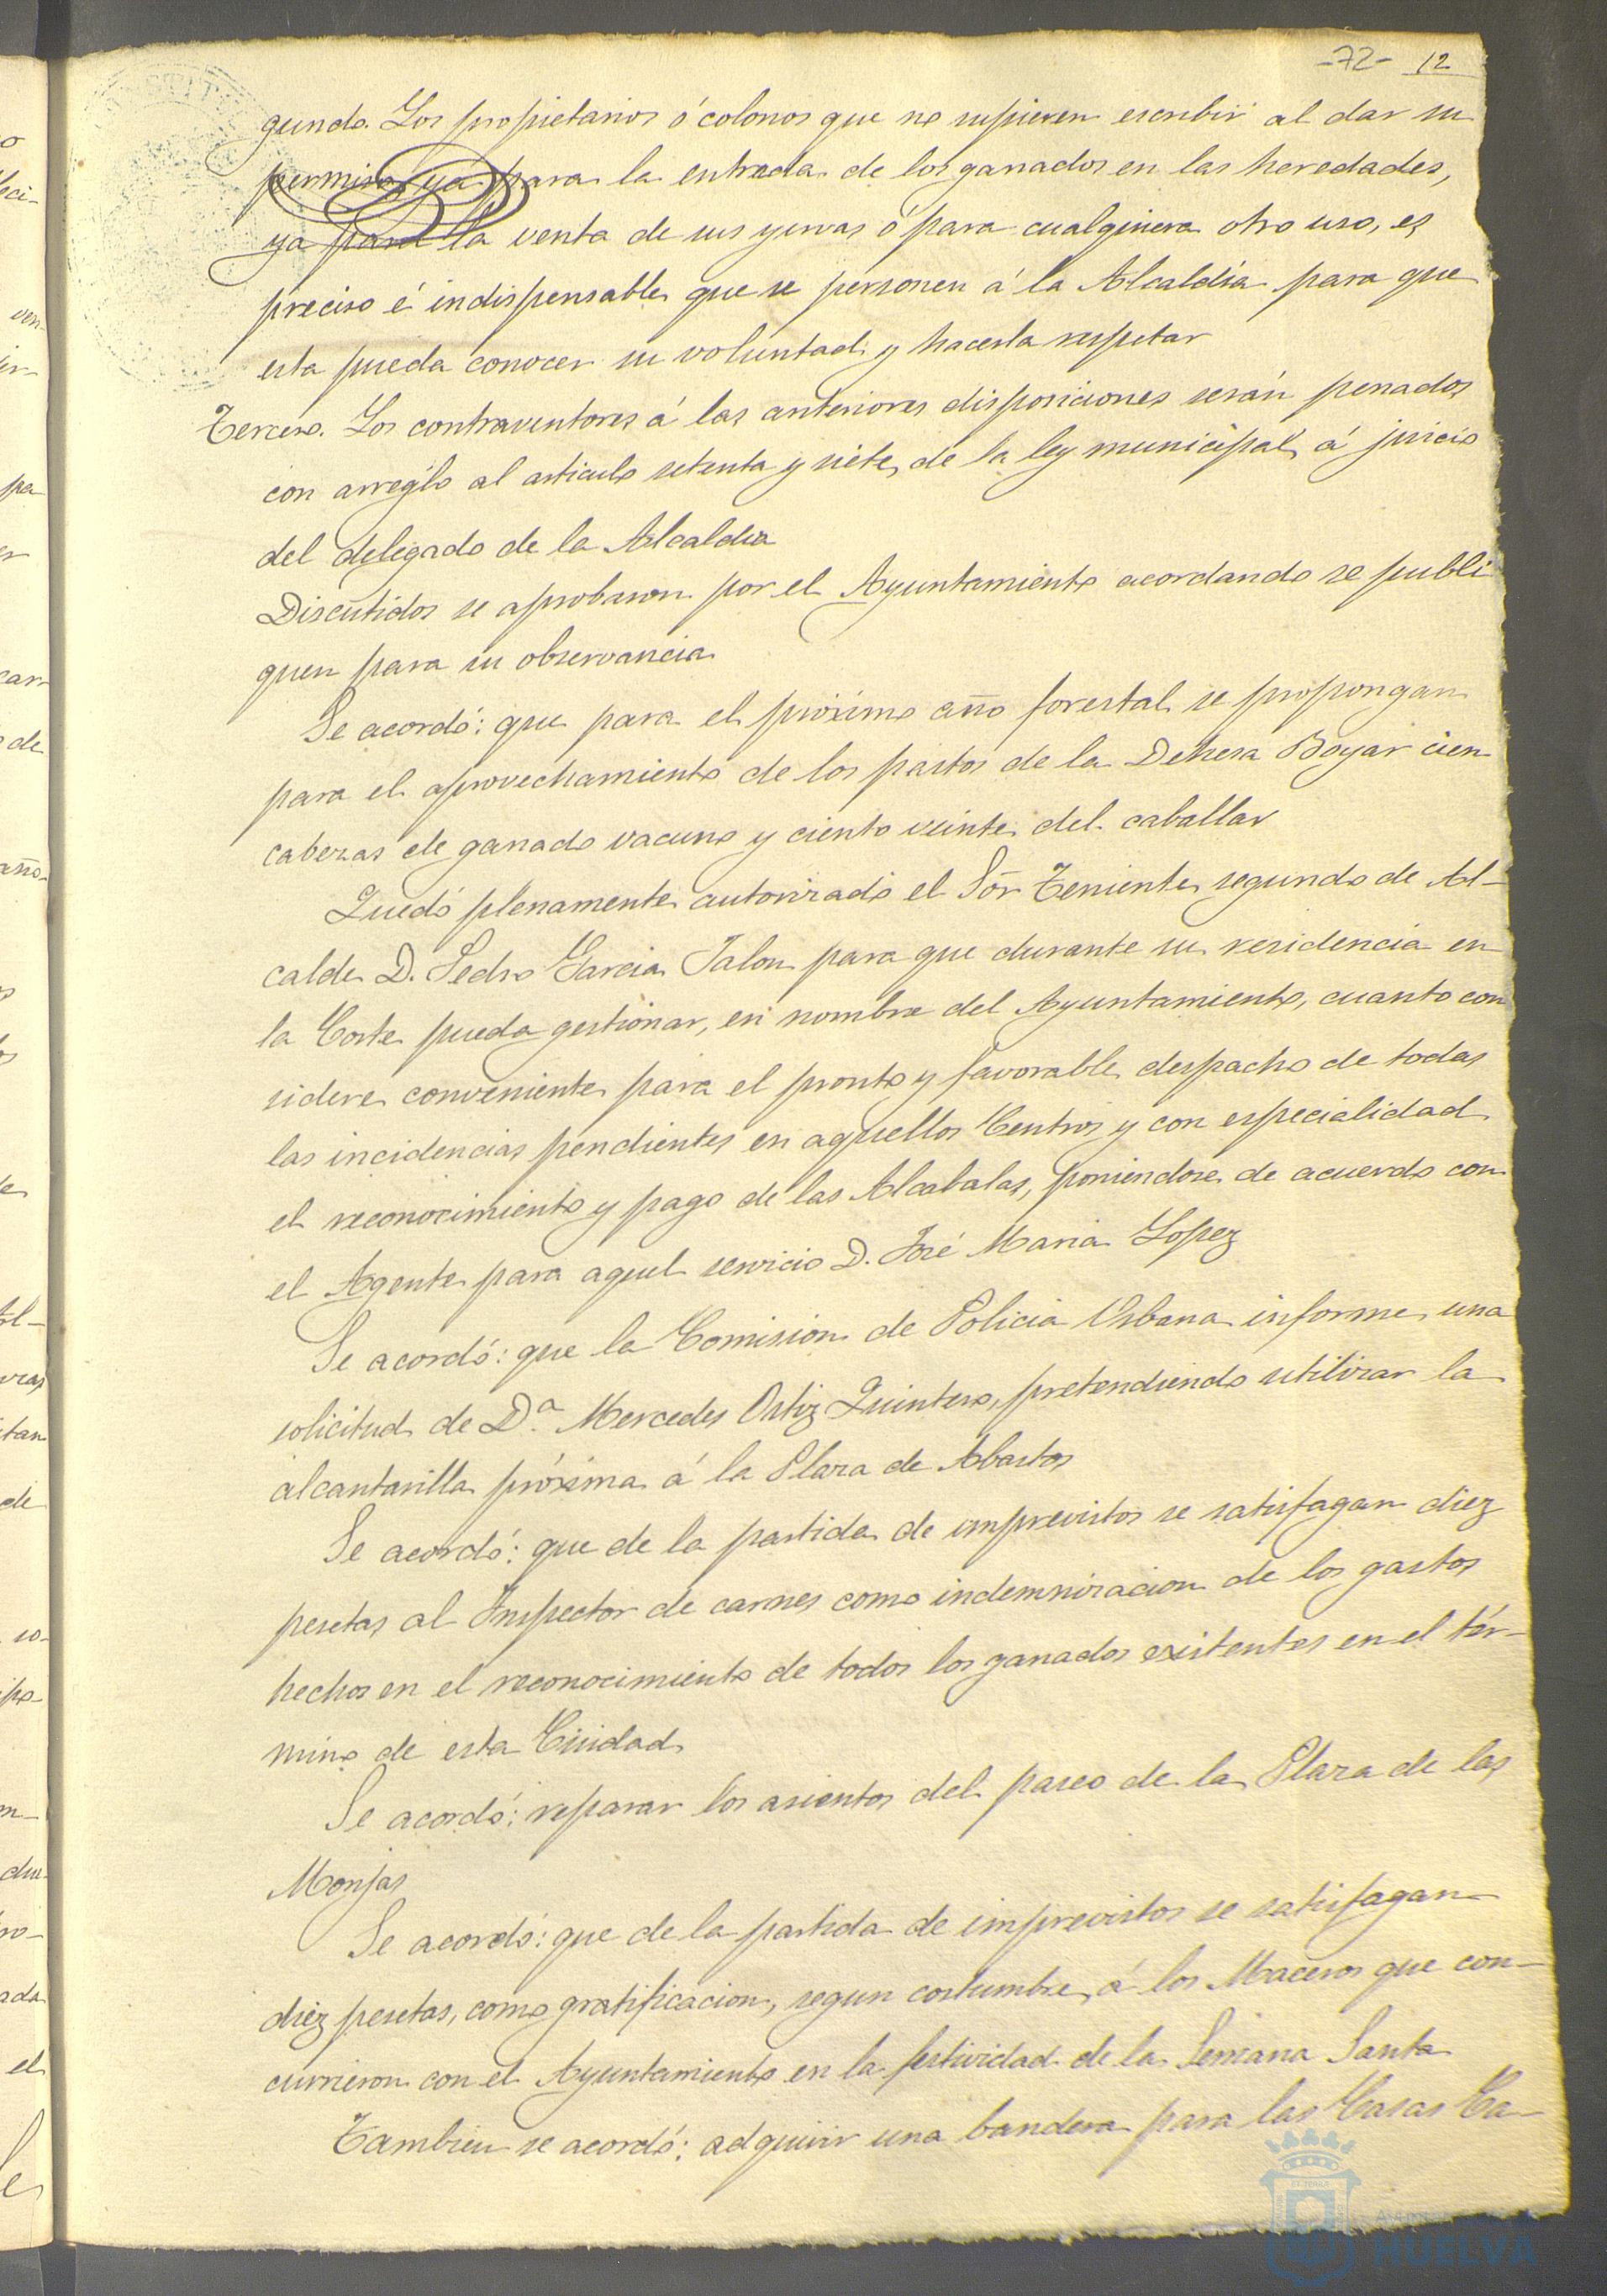 -72- 12
gundo. Los propietarios ó colonos que no supieren escribir al dar su
permiso, ya para la entrada de los ganados en las heredades,
ya para la venta de sus yervas ó para cualquiera otro uso, es
preciso é indispensable que se personen á la Alcaldía para que
esta pueda conocer su voluntad y hacerla respetar
Tercero. Los contraventores á las anteriores disposiciones serán penados
con arreglo al articulo setenta y siete de la ley municipal á juicio
del delegado de la Alcaldia
Discutidos se aprobaron por el Ayuntamiento acordando se publi
quen para su observancia
Se acordó: que para el próximo año forestal se propongan
para el aprovechamiento de los pastos de la Dehesa Boyar cien
cabezas de ganado vacuno y ciento veinte del caballar
Quedó plenamente autorizado el Sõr Teniente segundo de Al-
calde D. Pedro Garcia Jalon para que durante su residencia en
la Corte pueda gestionar, en nombre del Ayuntamiento, cuanto con
sidere conveniente para el pronto y favorable despacho de todas
las incidencias pendientes en aquellos Centros y con especialidad
el reconocimiento y pago de las Alcabalas, poniendose de acuerdo con
el Agente para aquel servicio D. José Maria Lopez
Se acordó: que la Comision de Policia Urbana informe una
solicitud de D.ª Mercedes Ortiz Quintero, pretendiendo utilizar la
alcantarilla próxima á la Plaza de Abastos
Se acordó: que de la partida de imprevistos se satisfagan diez
pesetas al Inspector de carnes como indemnizacion de los gastos
hechos en el reconocimiento de todos los ganados existentes en el tér-
mino de esta Ciudad
Se acordó: reparar los asientos del paseo de la Plaza de las
Monjas
Se acordó: que de la partida de imprevistos se satisfagan
diez pesetas, como gratificacion, segun costumbre, á los Maceros que con-
currieron con el Ayuntamiento en la festividad de la Semana Santa
Tambien se acordó: adquirir una bandera para las Casas Ca-
HUELVA